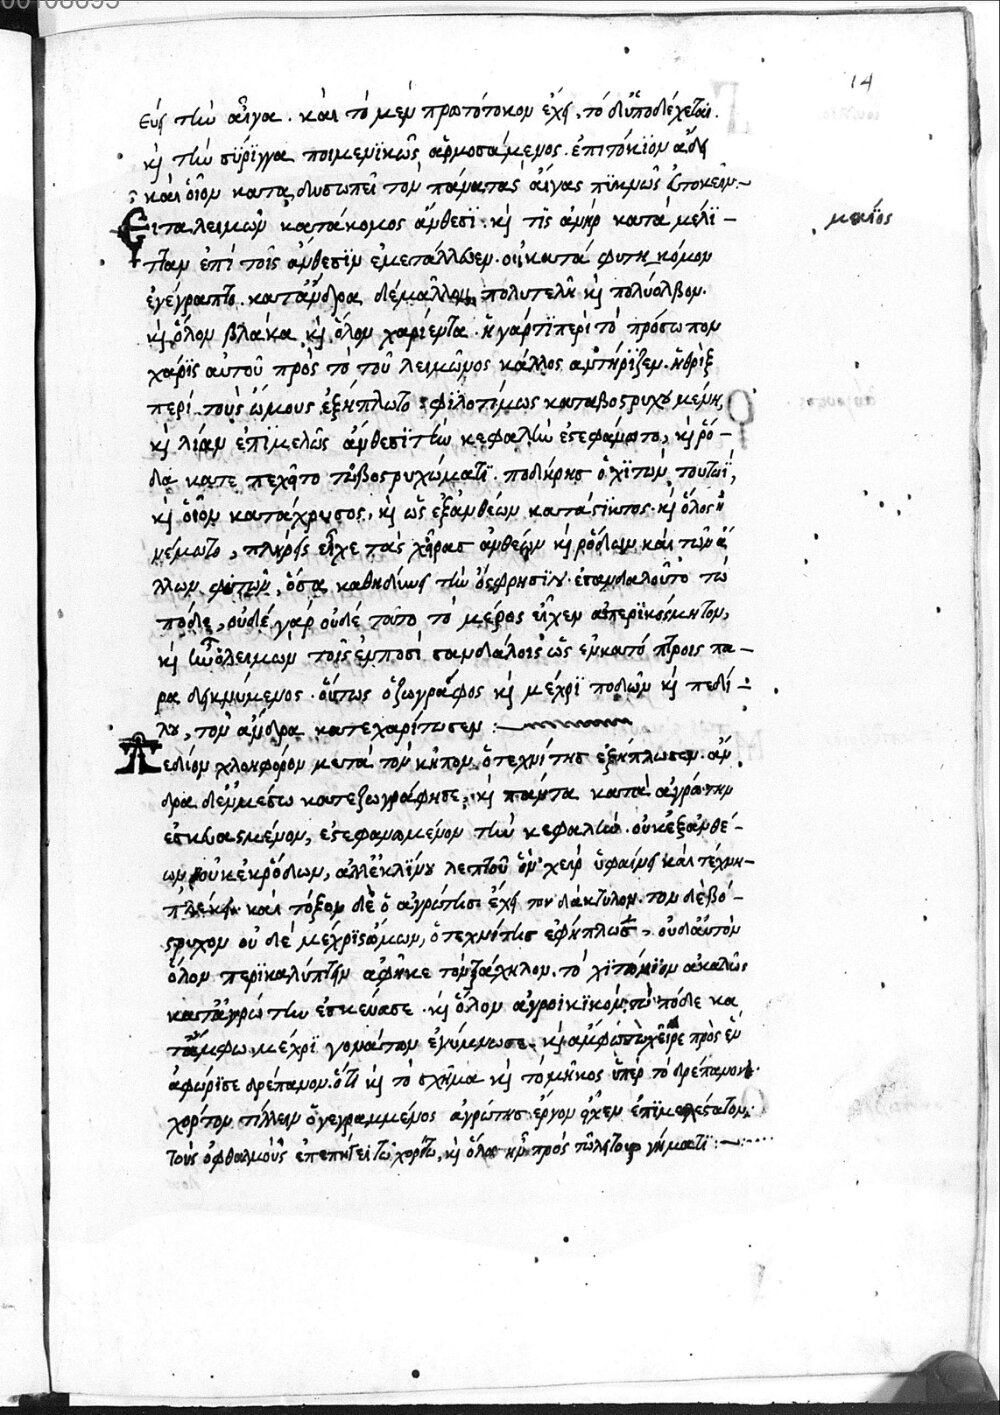 14
εύς τὴν αἶγα. καὶ τὸ μὲν πρωτότοκον ἔχει, τὸ δ' ὑποδέχεται.
κỳ τὴν σύριγγα ποιμενικῶς ἁρμοσάμενος. ἐπιτόκιον ἄδει
καὶ οἷον καταδυσωπεῖ τὸν πάνα τὰς αἶγας πυκνῶς
Εἶτα λειμὼν κατάκομος ἄνθεσι. κỳ τὶς ἀνὴρ κατὰ μέλι-
μαϊος
ταν ἐπὶ τοῖς ἄνθεσιν ἐμετάλλωεν. οὐ κατὰ φυτη κόμον
ἐγέγραπτο. κατ' ἄνδρα δὲ μᾶλλον πολυτελῆ κỳ πολύολβον.
κỳ ὅλον βλάκα κỳ ὅλον χαρίεντα. ἡ γάρ τι περὶ τὸ πρόσωπον
χάρις αὐτοῦ πρὸς τὸ τοῦ λειμῶνος κάλλος ἀντήριζεν. ἡ θρὶξ
περὶ τοὺς ὤμους ἐξήπλωτο φιλοτίμως καταβοστρυχουμένη,
κỳ λίαν ἐπιμελῶς ἄνθεσι τὴν κεφαλὴν ἐστεφάνωτο, κỳ ῥό-
δα κατεπεχῆτο τῶ βοστρυχώματι. ποδήρης ὁ χιτὼν τουτωΐ,
κỳ οἷον κατάχρυσος, κỳ ὡς ἐξ ἀνθέων κατάστικτος. κỳ ὅλος
νέμωτο, πλήρεις εἶχε τὰς χεῖρας ἀνθέων κỳ ῥόδων καὶ τῶν ἄ
λλων φυτῶν, ὅσα καθηδύνει τὴν ὄσφρησιν. ἐσανδαλοῦτο τὼ
πόδε, οὐδὲ γὰρ οὐδὲ τοῦτο τὸ μέρος εἶχεν ἀπερικόσμητον,
κỳ ἦν ὁ λειμὼν τοῖς ἐν ποσὶ σανδάλοις ὡς ἐν κατόπτροις πα-
ραδεικνύμενος. οὕτως ὁ ζωγράφος κỳ μέχρι ποδῶν κỳ πεδί-
λου, τὸν ἄνδρα κατεχαρίτωσεν :
Πεδίον χλοηφόρον μετὰ τὸν κῆπον, ὁ τεχνίτης ἐξήπλωσεν. ἄν
δρα δ' ἐμμέσω κατεζωγράφησε, κỳ πάντα κατὰ ἀγρότην
ἐσκευασμένον, ἐστεφανωμένον τὴν κεφαλήν. οὐκ ἐξ ἀνθέ-
ων οὐκ ἐκ ῥόδων, ἀλλ' ἐκ λίνου λεπτοῦ ὃν χεὶρ ὑφαίνει καὶ τέχνη
πλέκει. καὶ τόξον δὲ ὁ ἀγρότης ἔχει τὸν δάκτυλον. τὸν δὲ βό-
στρυχον οὐδὲ μέχρις ὤμων, ὁ τεχνίτης ἐφήπλωσε, οὐδ' αὐτὸν
ὅλον περικαλύπτειν ἀφῆκε τὸν τράχηλον. τὸ χιτώνιον ἀκαλῶς
κατ' ἀγρότην ἐσκεύασε. κỳ ὅλον ἀγροικικὸν, τὼ πόδε κα
τάμφω μέχρι γονάτων ἐγύμνωσε. κỳ ἄμφω τὼ χεῖρε πρὸς ἓν
ἀφώρισε δρέπανον. ὅτι κỳ τὸ σχῆμα κỳ τὸ μῆκος ὑπὲρ τὸ δρέπανον.
χόρτον τίλλειν ὁ γεγραμμένος ἀγρότης ἔργον εἶχεν ἐπιμελέστατον.
τοὺς ὀφθαλμοὺς ἐπεπήγει τῶ χόρτω, κỳ ὅλος ἦν πρὸς τῶ λητουργήματι :